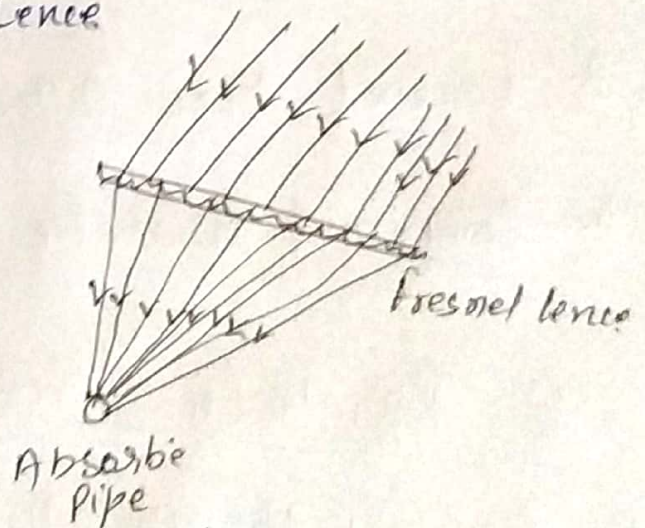 lence
fresnel lence
Absorbe
pipe